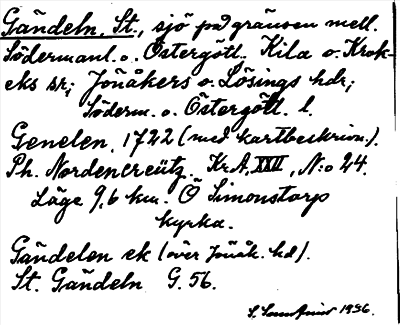 Gändeln, St., sjö på gränsen mell.
Södermanl. o. Östergötl., Kila o. Krok-
eks sr; Jönåkers o. Lösings hdr;
Söderm. o. Östergötl. l.
Genelen, 1722 (med kartbeskrivn.).
Ph. Nordencreütz. Kr.A. XXII, N:o 24.
Läge 9,6 km. Ö Simonstorps
kyrka.
Gändelen ek (över Jönåk. hd).
St. Gändeln G. 56.
S. 1936.